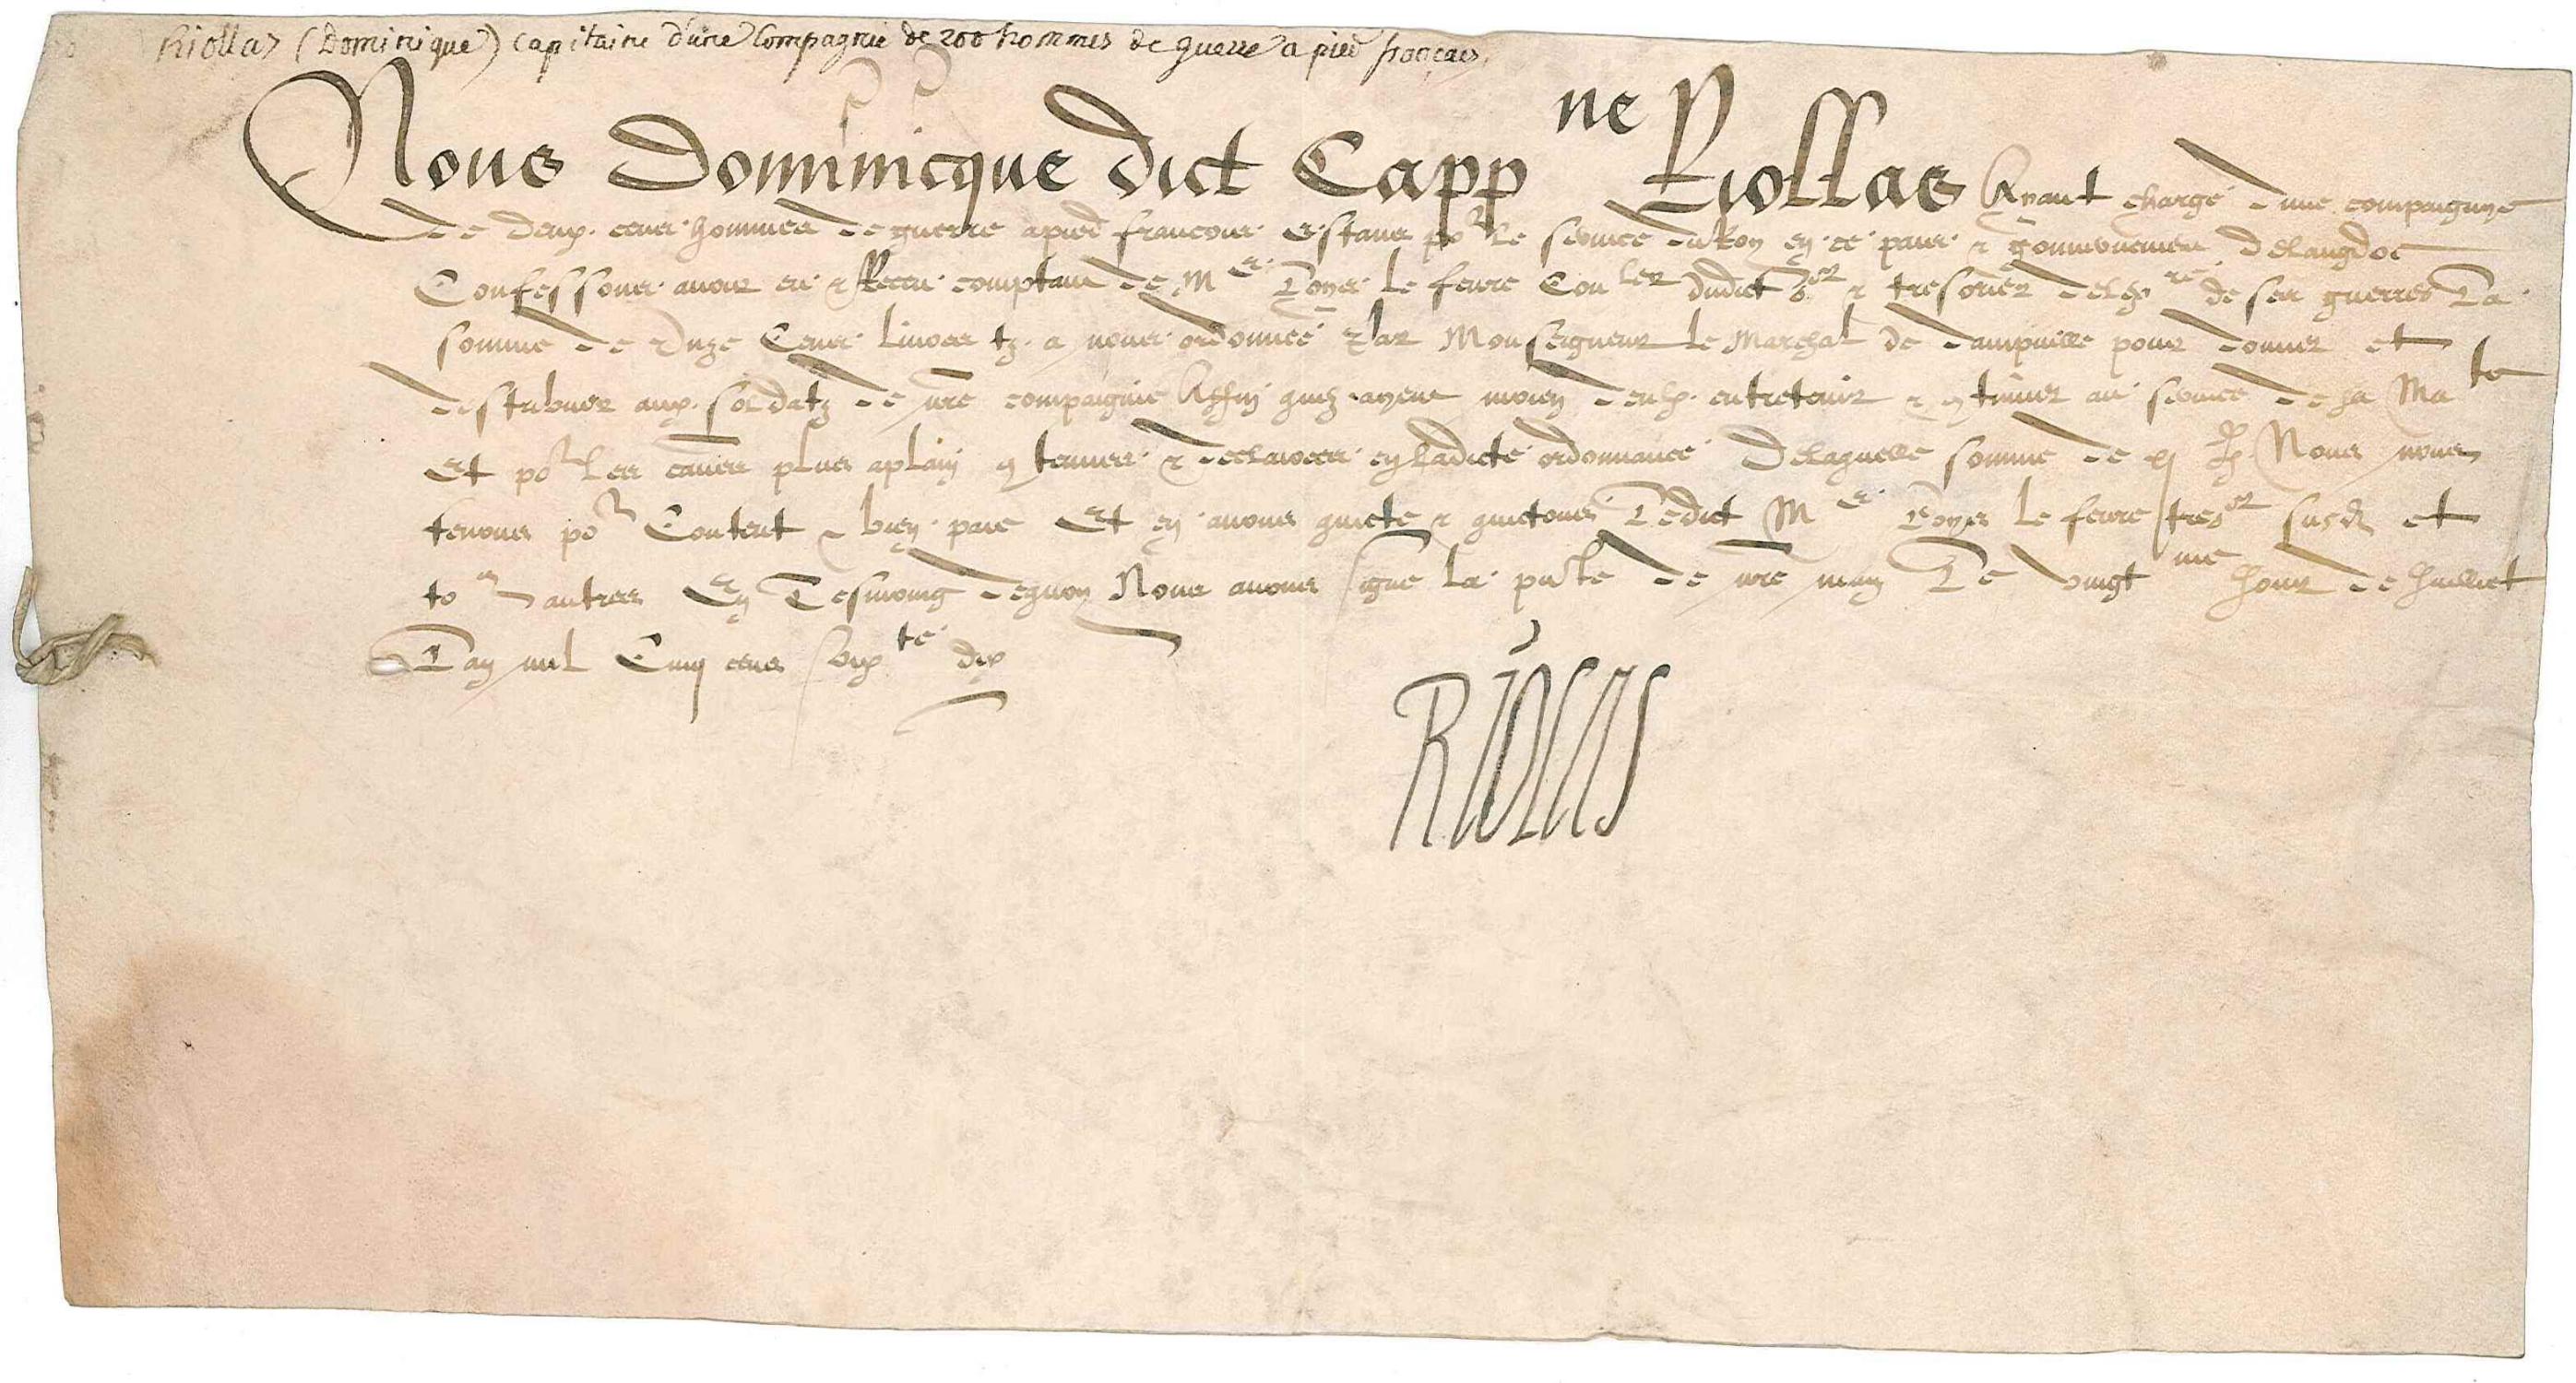 Riollas (Dominique) Capitaine d'une Compagnie de 200 hommes de guerre a pied français.
Nous Dominicque dict Capp ne Riollas Ayant charge dune compaignye
de deux cens hommes de guerre a pied francois estans por le service du Roy en ce pais & gouvernement de Langdoc
Confessons avoir eu & Receu comptant de Me Loys le fevre Conler dudict Sr & tresorier de lexre de ses guerres La
somme de Unze Cens Livres tz a nous ordonnee Par Monseigneur le Mareschal de dampville pour donner et
destribuer aux soldatz de nre compaignie Affin quilz ayent moien deulx entretenir & continuer au service de sa Mate
Et por les causes plus aplain contenues & declairees en ladicte ordonnance De laquelle somme de Nous nous
tenons por Content & bien paie Et en avons quicte & quictons Ledict Me Loys le fevre tresor susd et
tous autres En Tesmoing de quoy Nous avons signe la pnte de nre main Le vingt me Jour de Juillet
Lan mil Cinq cens soixte dix
RIOLAS